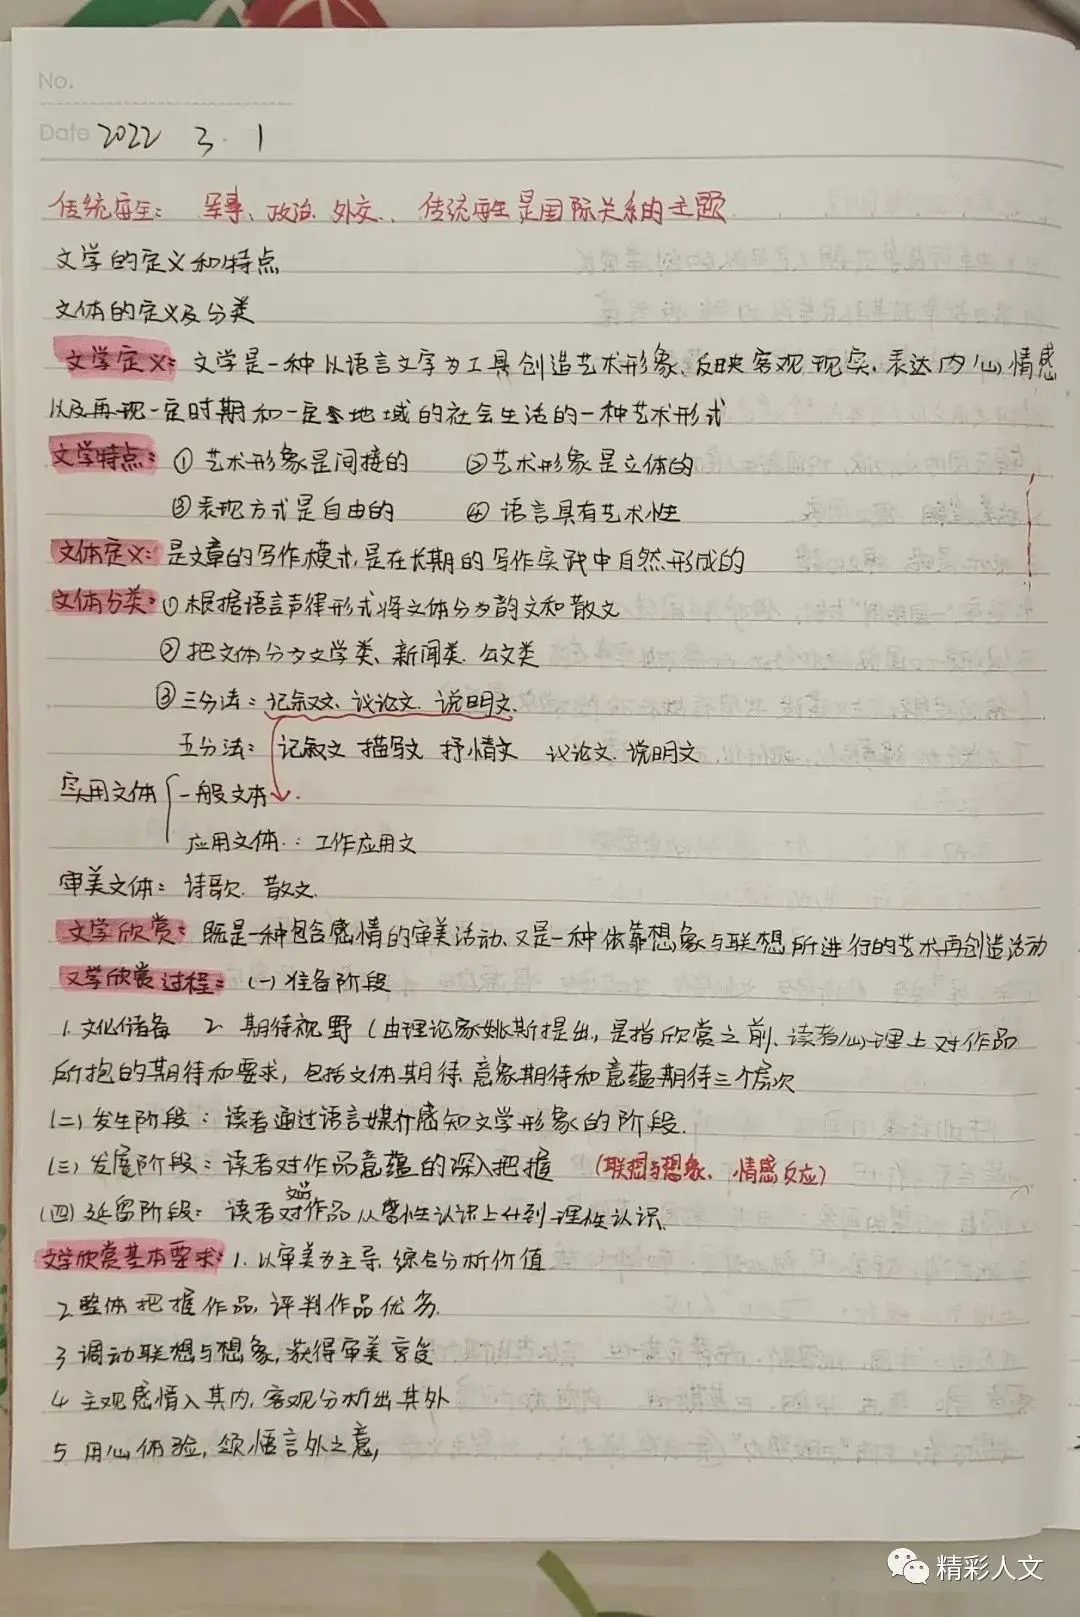 No.
Date 2022 3. 1
传统安全: 军事、政治、外交、传统安全是国际关系的主题
文学的定义和特点
文体的定义及分类
文学定义: 文学是一种以语言文字为工具创造艺术形象、反映客观现实、表达内心情感
以及再现一定时期和一定地域的社会生活的一种艺术形式
文学特点: ① 艺术形象是间接的 ②艺术形象是立体的
③表现方式是自由的 ④ 语言具有艺术性
文体定义: 是文章的写作模式,是在长期的写作实践中自然形成的
文体分类: ① 根据语言声律形式将文体分为韵文和散文
② 把文体分为文学类、新闻类、公文类
③ 三分法: 记叙文、议论文、说明文.
五分法: 记叙文 描写文 抒情文 议论文. 说明文
实用文体 一般文体
应用文体: 工作应用文
审美文体: 诗歌. 散文.
文学欣赏: 既是一种包含感情的审美活动、又是一种依靠想象与联想所进行的艺术再创造活动
文学欣赏过程: (一) 准备阶段
1. 文化储备 2. 期待视野 (由理论家姚斯提出, 是指欣赏之前、读者心理上对作品
所抱的期待和要求, 包括文体期待、意象期待和意蕴期待三个层次
(二) 发生阶段: 读者通过语言媒介感知文学形象的阶段.
(三) 发展阶段: 读者对作品意蕴的深入把握 (联想与想象、情感反应)
(四) 延留阶段: 读者对作品从感性认识上升到理性认识.
文学欣赏基本要求: 1. 以审美为主导 综合分析价值
2 整体把握作品, 评判作品优劣.
3 调动联想与想象, 获得审美享受
4 主观感情入其内, 客观分析出其外
5 用心体验, 领悟言外之意,
精彩人文